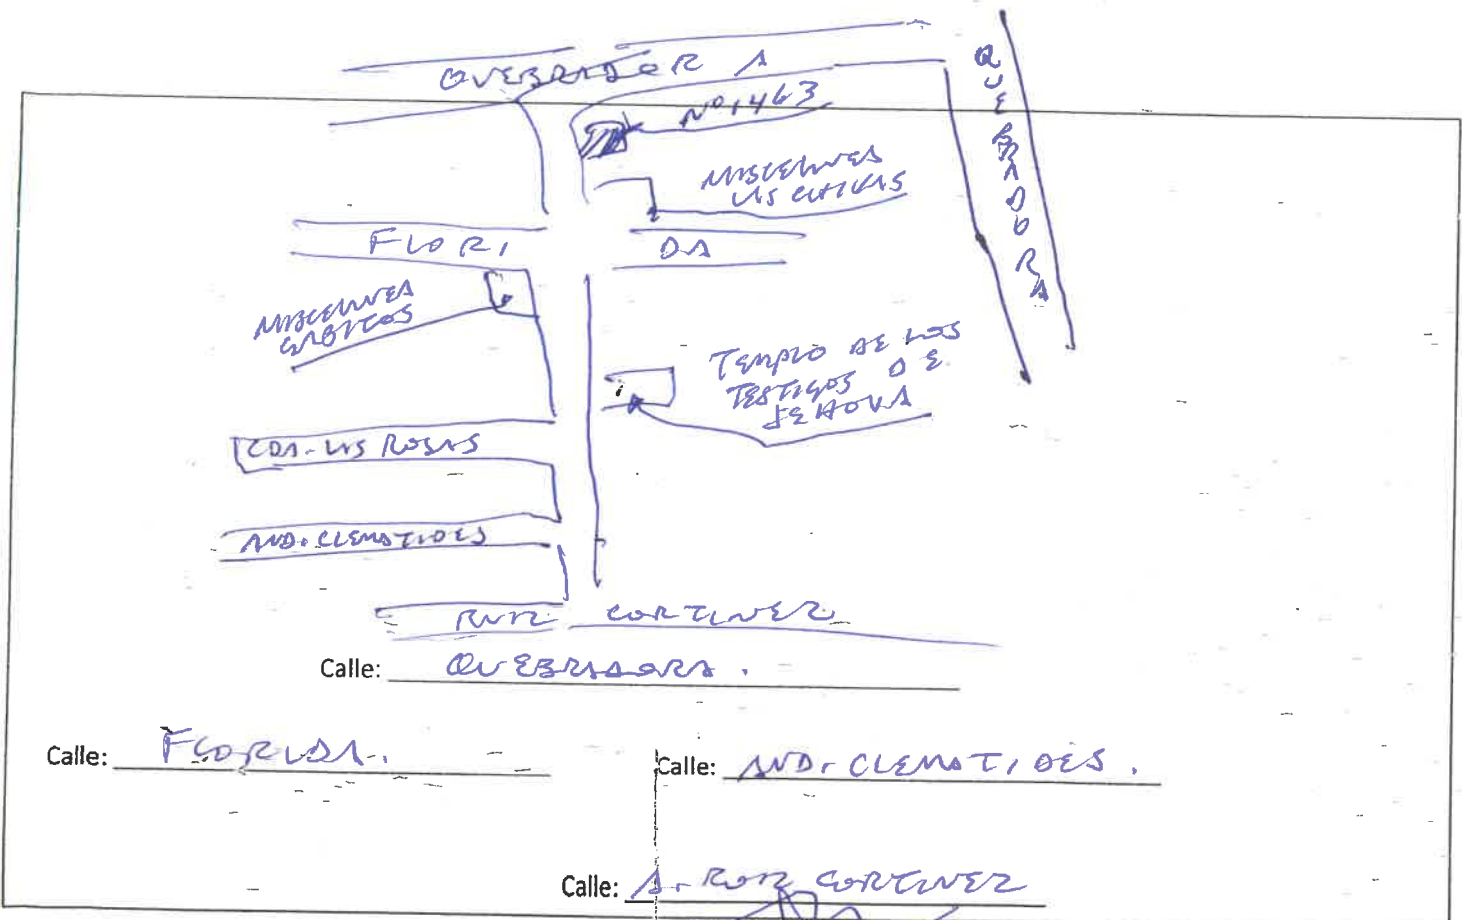 QUEBRADORA
QUEBRADORA
Nº 1463
MISCELANEA
LAS CHICAS
FLORIDA
MISCELANEA
TEMPLO DE LOS
TESTIGOS DE
JEHOVA
CDA. LAS ROSAS
AND. CLEMATIDES
RUIZ CORTINEZ
Calle: QUEBRADORA.
Calle: FLORIDA.
Calle: AND. CLEMATIDES.
Calle: A. RUIZ CORTINEZ